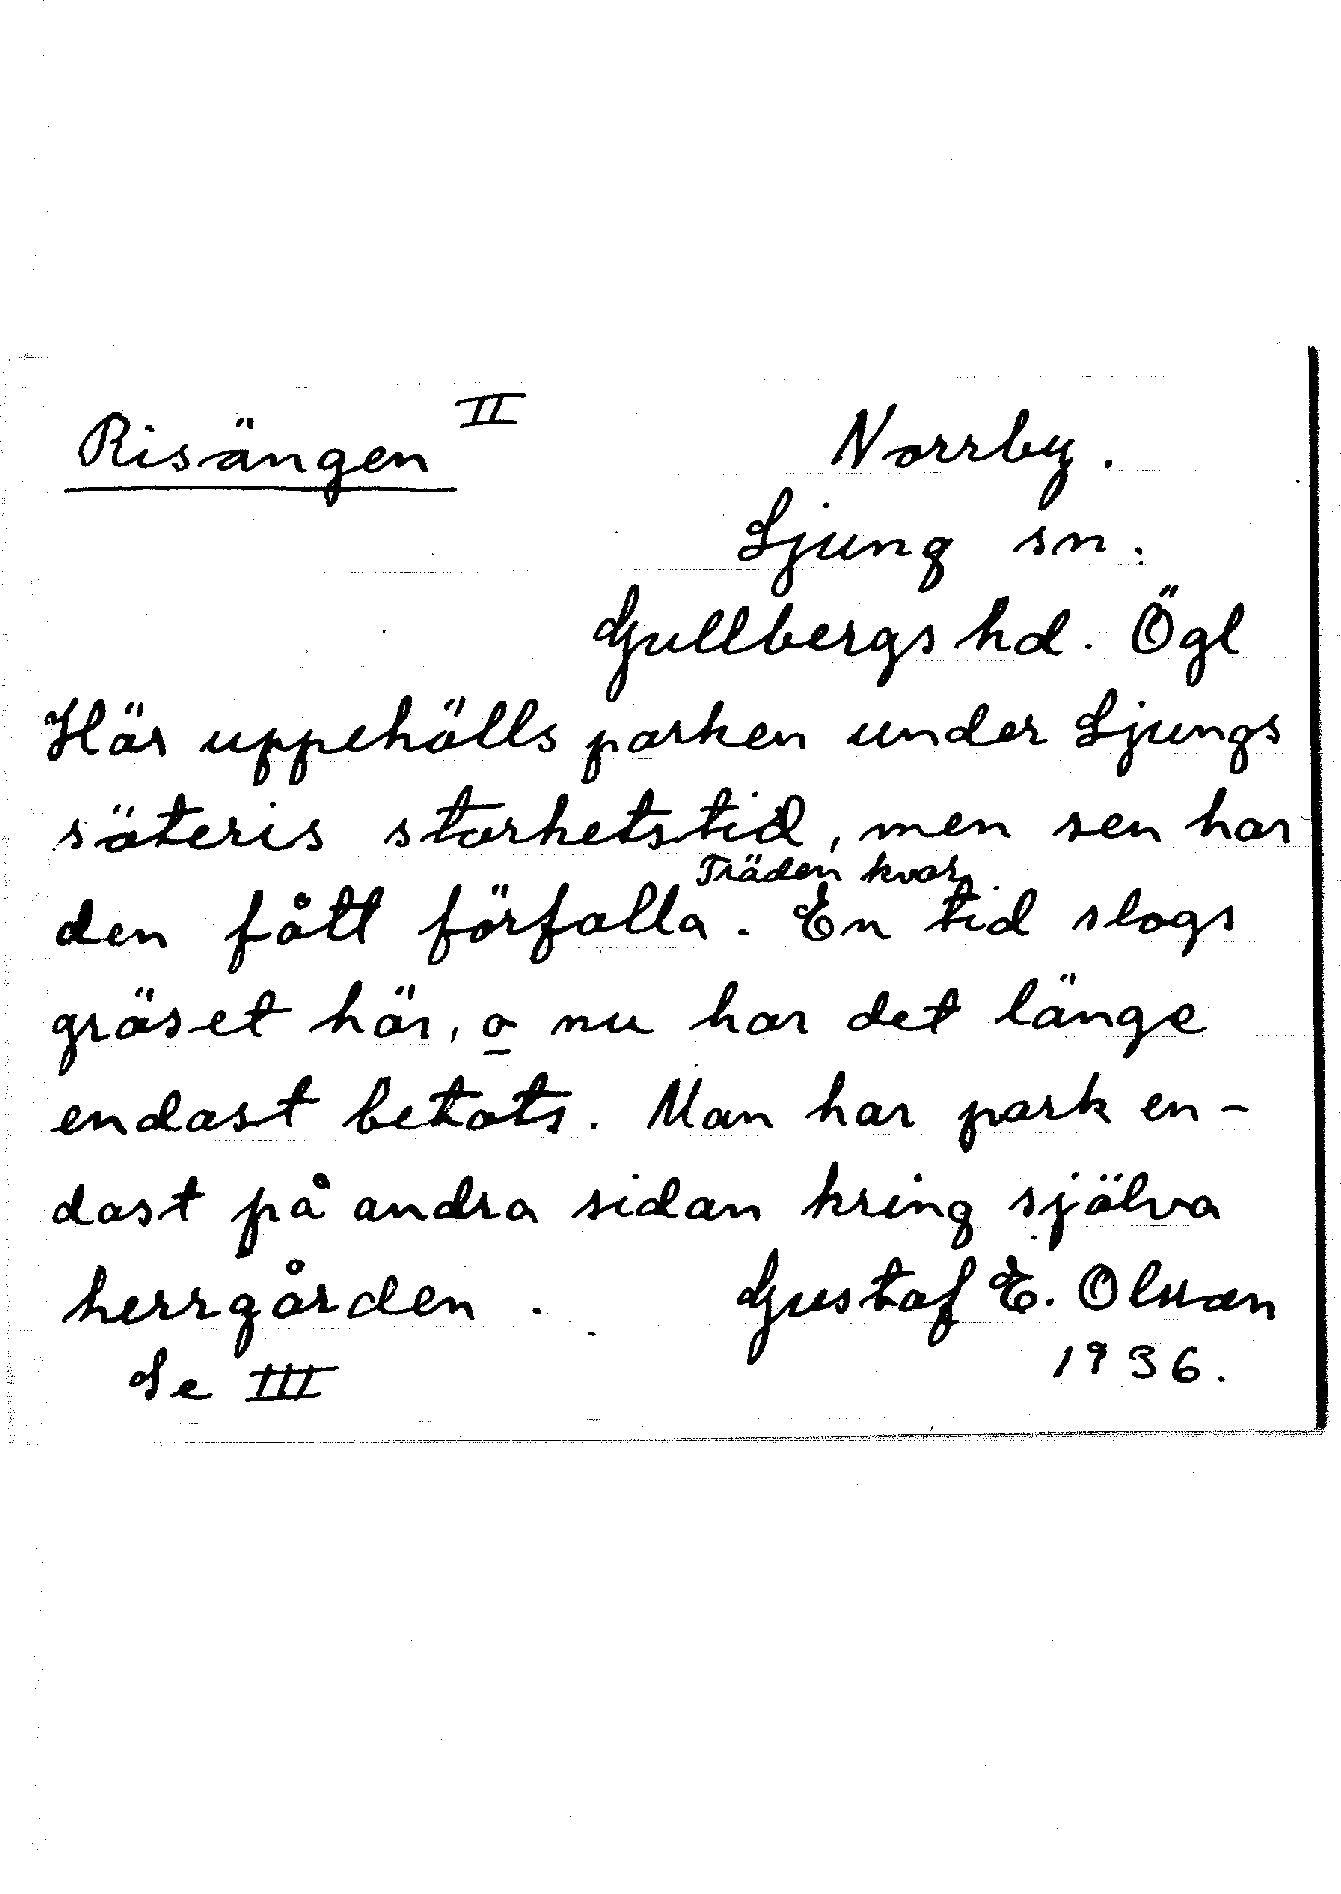 Risängen II
Norrby.
Ljung sn.
Gullbergs hd. Ögl
Här uppehölls parken under Ljungs
säteris storhetstid, men sen har
Träden kvar.
den fått förfalla. En tid slogs
gräset här, o nu har det länge
endast betats. Man har park en-
dast på andra sidan kring själva
herrgården.
Gustaf E. Olsson
Se III
1936.